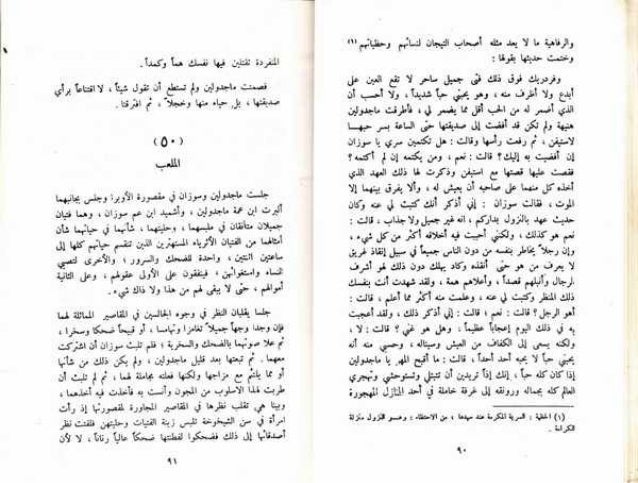 والرفاهية ما لا يعد مثله أصحاب التيجان لنسائهم وحظياتهم (١)
وختمت حديثها بقولها :
وفردريك فوق ذلك فتى جميل ساحر لا تقع العين على
أبدع ولا أظرف منه ، وهو يحبني حباً شديداً ، ولا أحسب أن
الذي أضمر له من الحب أقل مما يضمر لي ، فأطرقت ماجدولين
هنيهة ولم تكن قد أفضت إلى صديقتها حتى الساعة بسر حبهما
لاستيفن ، ثم رفعت رأسها وقالت : هل تكتمين سري يا سوزان
إن أفضيت به إليك؟ قالت : نعم ، ومن يكتمه إن لم أكتمه ؟
فقصت عليها قصتها مع استيفن وذكرت لها ذلك العهد الذي
أخذه كل منهما على صاحبه أن يعيش له ، وألا يفرق بينهما إلا
الموت ، فقالت سوزان : إني أذكر أنك كتبت لي عنه وكان
حديث عهد بالنزول بداركم ، انه غير جميل ولا جذاب ، قالت :
نعم هو كذلك ، ولكنني أحببت فيه أخلاقه أكثر من كل شيء ،
وإن رجلاً يخاطر بنفسه من دون الناس جميعاً في سبيل إنقاذ غريق
لا يعرف من هو حتى أنقذه وكاد يهلك دون ذلك لهو أشرف
لرجال وأنبلهم قصداً ، وأعلاهم همة ، ولقد شهدت أنت بنفسك
ذلك المنظر وكتبت لي عنه ، وعلمت منه أكثر مما أعلم ، قالت :
أهو الرجل ؟ قالت : نعم ؛ قالت : إني أذكر ذلك ، ولقد أعجبت
به في ذلك اليوم إعجاباً عظيماً ، وهل هو غني ؟ قالت : لا ،
ولكنه يسعى إلى الكفاف من العيش وسيناله ، وحسبي منه أنه
يحبني حباً لا يحبه أحد أحداً ، قالت : ما أقبح المهر يا ماجدولين
إذا كان كله حباً ، إنك إذاً تريدين أن تتبتلي وتستوحشي وتهجري
العالم كله بجماله ورونقه إلى غرفة خاملة في أحد المنازل المهجورة
(١) الحظية : السرية المكرمة عند سيدها ؛ من الاحتظاء : وهو النزول منزلة
الكرامة .
٩٠
المنفردة تقتلين فيها نفسك هماً وكمداً .
فصمتت ماجدولين ولم تستطع أن تقول شيئاً ، لا اقتناعاً برأي
صديقتها ، بل حياء منها وخجلاً ، ثم افترقتا .
(٥٠)
الملعب
جلست ماجدولين وسوزان في مقصورة الأوبرا، وجلس بجانبهما
ألبرت ابن عمة ماجدولين ، وأشميد ابن عم سوزان ، وهما فتيان
جميلان متأنقان في ملبسهما ، وحليتهما ، شأنهما في حياتهما شأن
أمثالهما من الفتيان الأثرياء المستهترين الذين تنقسم حياتهم كلها إلى
ساعتين اثنتين ، واحدة للضحك والسرور ؛ والأخرى لتصبي
النساء واستغوائهن ؛ فينفقون على الأولى عقولهم ، وعلى الثانية
أموالهم ، حتى لا يبقى لهم من هذا ولا ذاك شيء .
جلسا يقلبان النظر في وجوه الجالسين في المقاصير المماثلة لهما
فإن وجدا وجهاً جميلاً تغامزا وتهامسا ، أو قبيحاً ضحكا وسخرا ،
ثم علا صوتهما بالضحك والسخرية ؛ فلم تلبث سوزان أن اشتركت
معهما . ثم تبعتها بعد قليل ماجدولين ، ولم يكن ذلك من شأنها
أو مما يلتئم مع مزاجها ولكنها فعلته مجاملة لهما ، ثم لم تلبث أن
طربت لهذا الاسلوب من المجون وأنست به فأخذت فيه أخذهما ،
وبينا هي تقلب نظرها في المقاصير المجاورة لمقصورتها إذ رأت
امرأة في سن الشيخوخة تلبس زينة الفتيات وحليتهن فلفتت نظر
أصدقائها إلى ذلك فضحكوا لفطنتها ضحكاً عالياً رناناً ، لا لأن
٩١